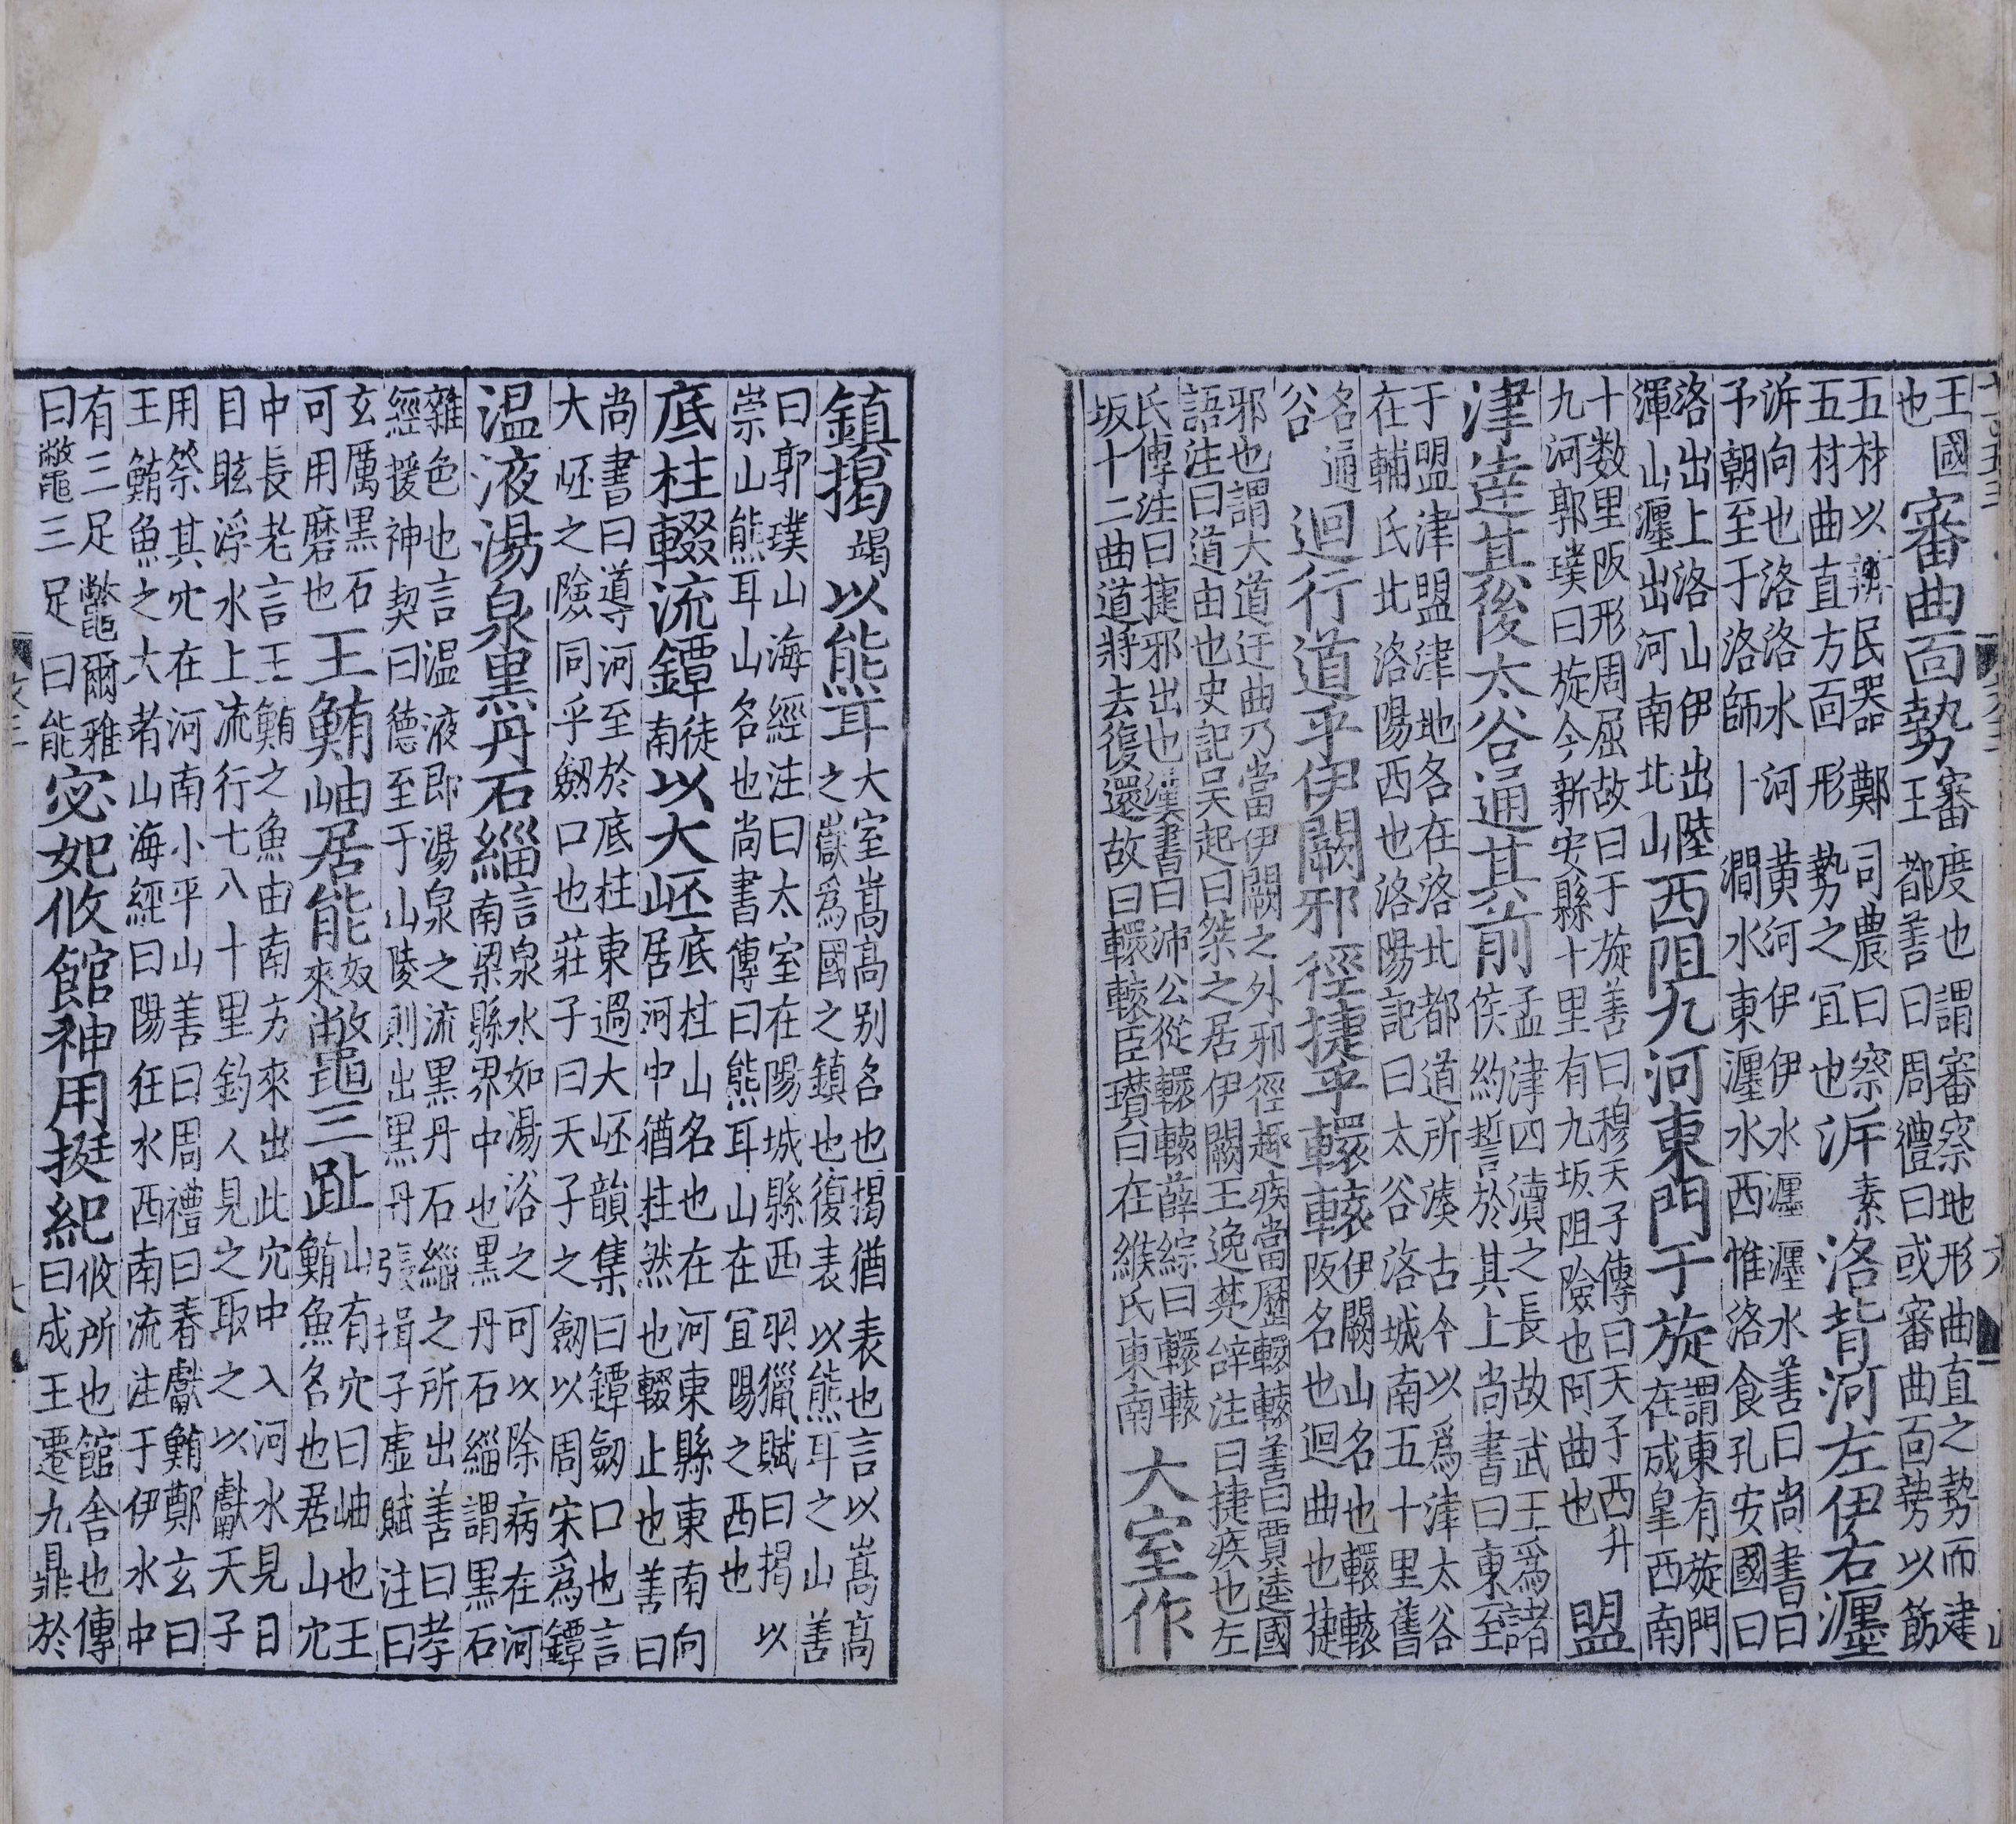 王國也審曲面勢審度也謂審察地形曲直之勢而建王都善曰周禮曰或審曲面勢以飭
五材以辨民器鄭司農曰察五材曲直方面形勢之宜也泝素洛背河左伊右瀍
泝向也洛洛水河黃河伊伊水瀍瀍水善曰尚書曰予朝至于洛師卜澗水東瀍水西惟洛食孔安國曰
洛出上洛山伊出陸渾山瀍出河南北山西阻九河東門于旋謂東有旋門在成皐西南
十数里阪形周屈故曰于旋善曰穆天子傳曰天子西升九河郭璞曰旋今新安縣十里有九坂阻險也阿曲也盟
津達其後太谷通其前孟津四瀆之長故武王爲諸侯約誓於其上尚書曰東至
于盟津盟津地各在洛北都道所湊古今以爲津太谷在輔氏北洛陽西也洛陽記曰太谷洛城南五十里舊
名通谷迴行道乎伊闕邪徑捷乎轘轅伊闕山名也轘轅阪名也迴曲也捷
邪也謂大道迂曲乃當伊闕之外邪徑趣疾當歷轘轅善曰賈逵國語注曰道由也史記吴起曰桀之居伊闕王逸楚辭注曰捷疾也左
氏傳注曰捷邪出也漢書曰沛公從轘轅薛綜曰轘轅坂十二曲道將去復還故曰轘轅臣瓚曰在緱氏東南大室作
鎮揭竭以熊耳大室嵩高別名也揭猶表也言以嵩高之嶽爲國之鎮也復表以熊耳之山善
曰郭璞山海經注曰太室在陽城縣西羽獵賦曰揭以崇山熊耳山名也尚書傳曰熊耳山在宜陽之西也
底柱輟流鐔徒南以大岯底柱山名也在河東縣東南向居河中猶柱然也輟止也善曰
尚書曰導河至於底柱東過大岯韻集曰鐔劒口也言大岯之險同乎劒口也莊子曰天子之劒以周宋爲鐔
温液湯泉黒丹石緇言泉水如湯浴之可以除病在河南梁縣界中也黒丹石緇謂黒石
雜色也言温液即湯泉之流黒丹石緇之所出善曰孝經援神契曰德至于山陵則出黒丹張揖子虛賦注曰
玄厲黒石可用磨也王鮪岫居能奴來鼈三趾山有穴曰岫也王鮪魚名也居山穴
中長老言王鮪之魚由南方來出此穴中入河水見日目眩浮水上流行七八十里釣人見之取之以獻天子
用祭其穴在河南小平山善曰周禮曰春獻鮪鄭玄曰王鮪魚之大者山海經曰陽狂水西南流注于伊水中
有三足鼈爾雅曰鼈三足曰能宓妃攸館神用挺紀攸所也館舍也傳曰成王遷九鼎於